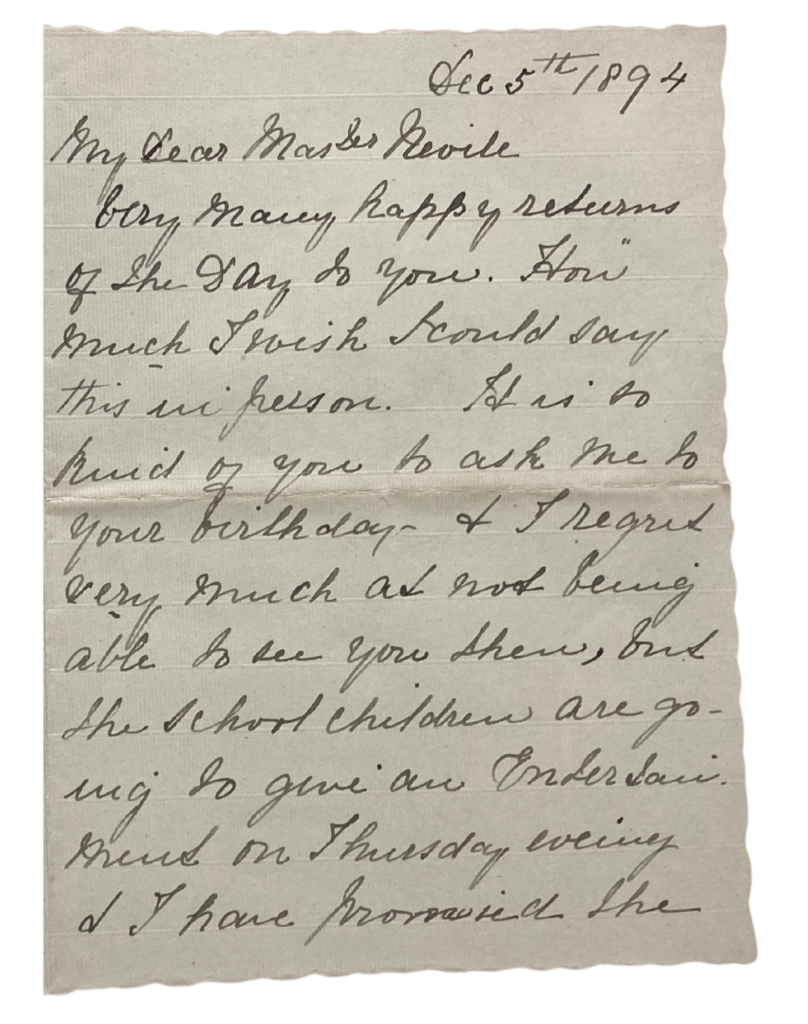 Dec 5th 1894
My Dear Master Nevile
Very many happy returns
of the Day to you. How
much I wish I could say
this in person. It is so
kind of you to ask me to
your birthday & I regret
very much at not being
able to see you then, but
the school children are go-
ing to give an Entertain-
ment on Thursday eveing
& I have promised the